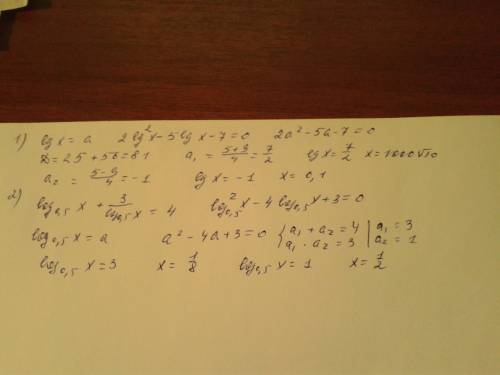 1) lg x = a 2lg²x - 5lg x - 7 = 0 2a² - 5a - 7 = 0
D = 25 + 56 = 81 a₁ = (5+9)/4 = 7/2 lg x = 7/2 x = 1000√10
a₂ = (5-9)/4 = -1 lg x = -1 x = 0,1
2) log₀,₅ x + 3/log₀,₅ x = 4 log²₀,₅ x - 4 log₀,₅ x + 3 = 0
log₀,₅ x = a a² - 4a + 3 = 0 { a₁ + a₂ = 4 a₁ · a₂ = 3 | a₁ = 3 a₂ = 1
log₀,₅ x = 3 x = 1/8 log₀,₅ x = 1 x = 1/2